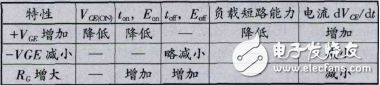 特性 V_GE(ON) t_on, E_on t_off, E_off 负载短路能力 电流 dV_CE/dt
+V_GE 增加 降低 降低 — 降低 增加
-VGE 减小 — — 略减小 —
R_G 增大 — 增加 增加 — 减小
电子发烧友